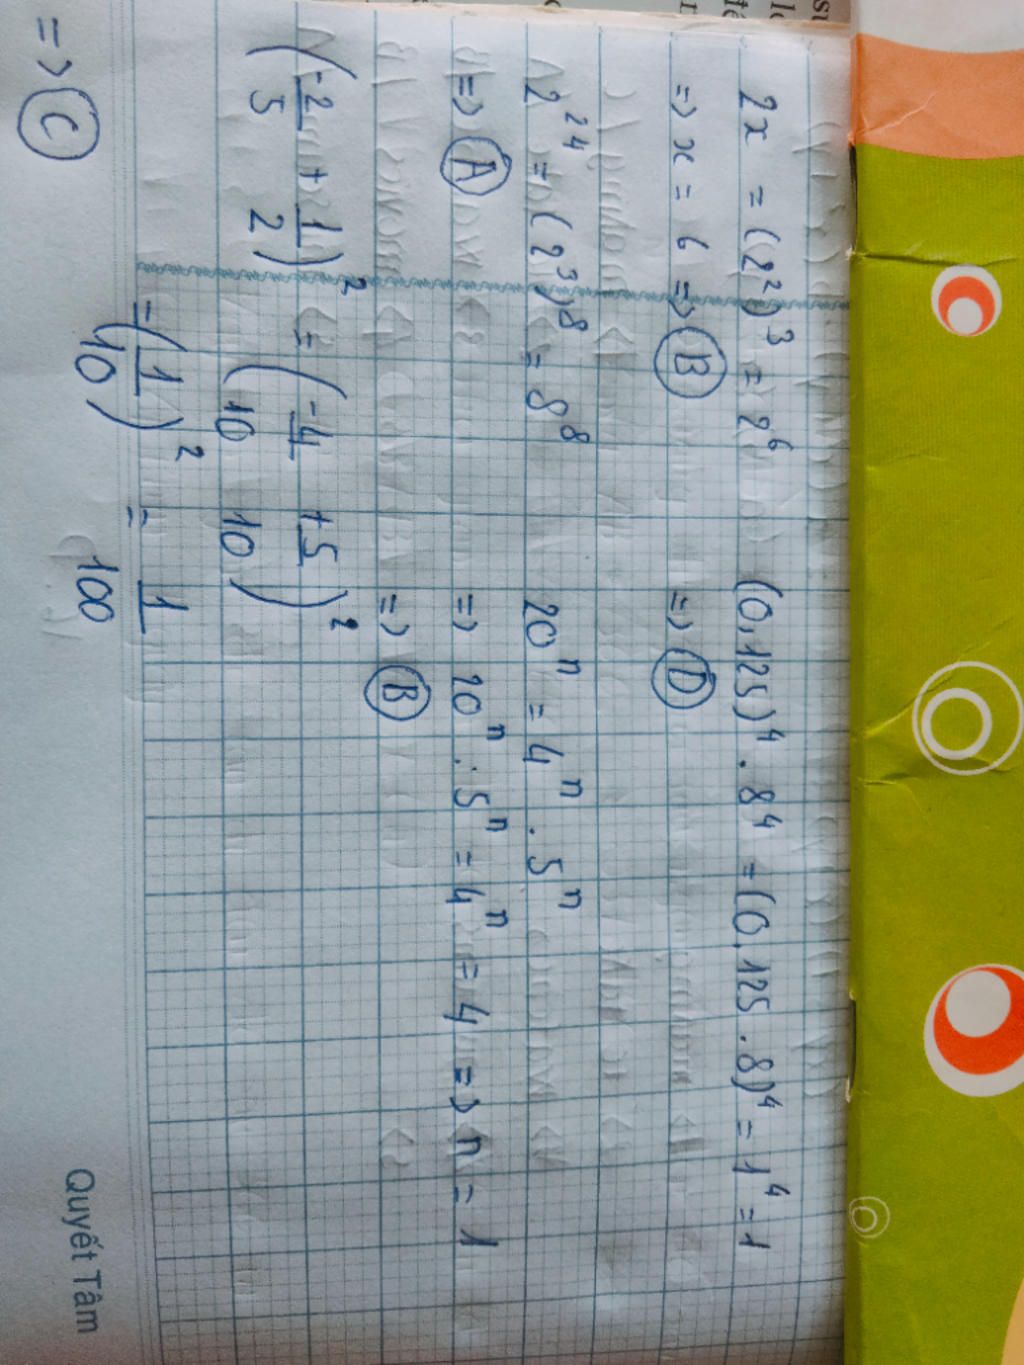 2x = (2²)³ = 2⁶
=> x = 6 => B
(0,125)⁴ . 8⁴ = (0,125 . 8)⁴ = 1⁴ = 1
=> D
2²⁴ = (2³)⁸ = 8⁸
=> A
20ⁿ = 4ⁿ . 5ⁿ
=> 20ⁿ : 5ⁿ = 4ⁿ = 4 => n = 1
=> B
(-2/5 + 1/2)² = (-4/10 + 5/10)²
= (1/10)² = 1/100
=> C
Quyết Tâm